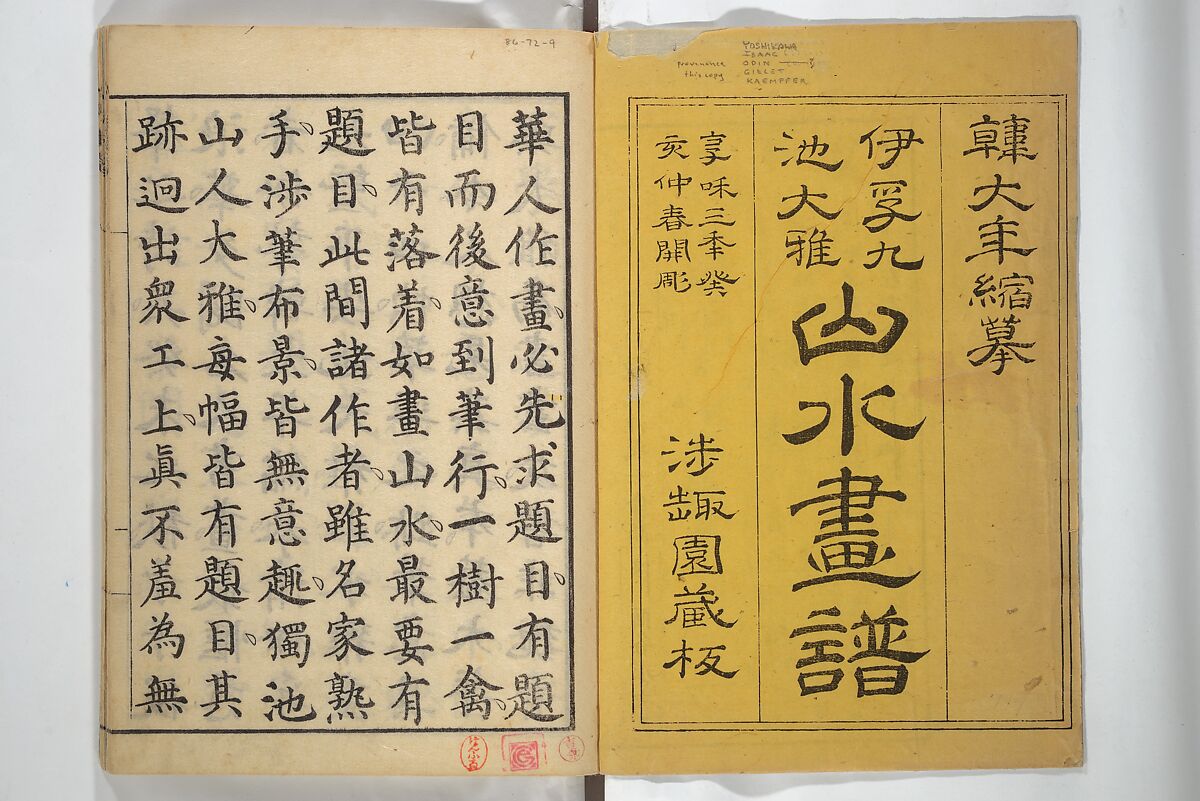 韓大年縮摹
伊孚九
池大雅
山水畫譜
享咊三秊癸
亥仲春開彫
涉趣園蔵板
provenance
this copy
YOSHIKAWA
ISAAC
ODIN
GILLET
KAEMPFER
86-72-9
華人作畫、必先求題目、有題
目而後意到筆行、一樹一禽、
皆有落着、如畫山水、最要有
題目、此間諸作者、雖名家熟
手、涉筆布景、皆無意趣、獨池
山人大雅、每幅皆有題目、其
跡迥出衆工上、眞不羞為無